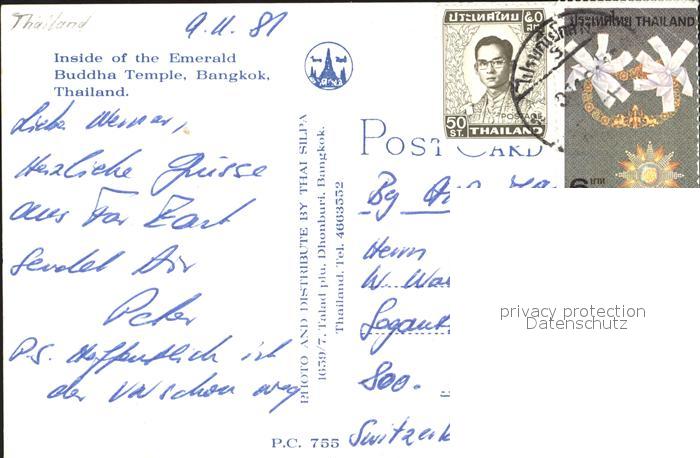 Thailand
9.11.81
Inside of the Emerald
Buddha Temple, Bangkok,
Thailand.
Liebe Werner,
Herzliche Grüsse
aus Far East
sendet Dir
Peter
P.S. Hoffentlich ist
der
weg
PHOTO AND DISTRIBUTE BY THAI SILPA
1659/7, Talad plu, Dhonburi, Bangkok.
Thailand, Tel. 4663552
P.C. 755
ประเทศไทย ๕๐
สต.
POSTAGE
50
ST. THAILAND
ประเทศไทย THAILAND
6 บาท
POST CARD
By
Herrn
W.
800.
privacy protection
Datenschutz